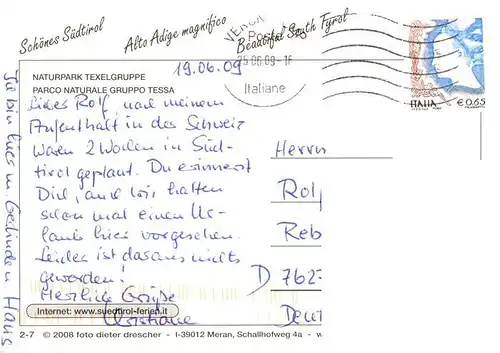 Schönes Südtirol
Alto Adige magnifico
Beautiful South Tyrol
19.06.09
25.06.09-1
Italiane
ITALIA
€ 0,65
NATURPARK TEXELGRUPPE
PARCO NATURALE GRUPPO TESSA
Lieber Rolf, nach meinem
Aufenthalt in der Schweiz
waren 2 Wochen in Süd-
tirol geplant. Du erinnerst
Dich, auch wir hatten
schon mal einen Ur-
laub hier vorgesehen.
Leider ist daraus nichts
geworden!
Herzliche Grüße
Christiane
Herrn
Rolf
Reb
D 762
Deut
Internet: www.suedtirol-ferien.it
2-7 © 2008 foto dieter drescher - I-39012 Meran, Schallhofweg 4a -
Sie bin hier m. Haus